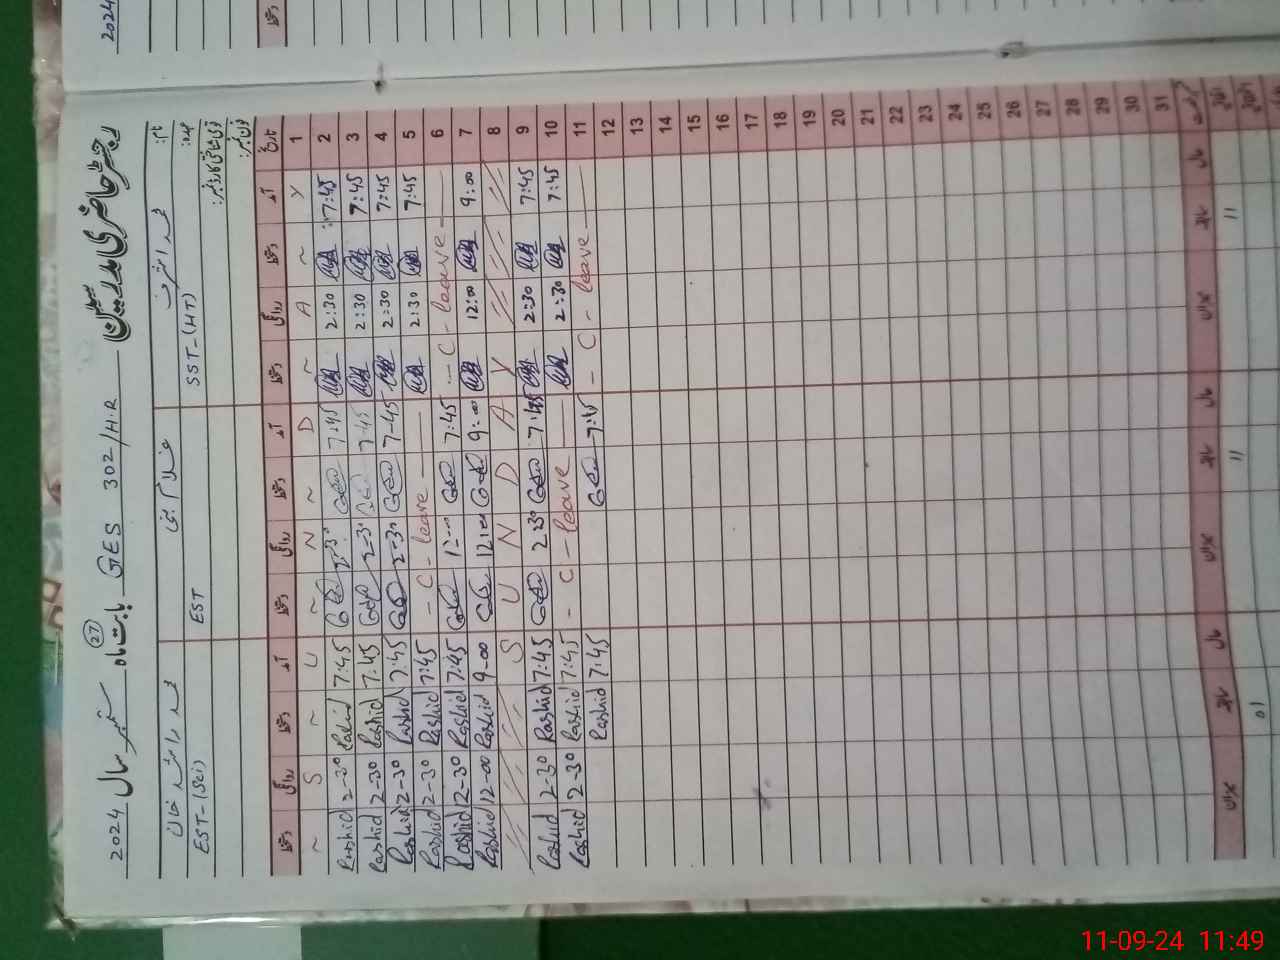 رجسٹر حاضری مدرسین GES 302/H.R بابت ماہ ستمبر سال 2024
(27)
نام: محمد اشرف غلام نبی محمد راشد خان
عہدہ: SST-(HT) EST EST-(Sci)
قومی شناختی کارڈ نمبر:
فون نمبر:
دستخط روانگی دستخط آمد دستخط روانگی دستخط آمد دستخط روانگی دستخط آمد تاریخ
~ S ~ U ~ N ~ D ~ A ~ Y 1
Rashid 2-30 Rashid 7:45 2-30 7:45 2:30 7:45 2
Rashid 2-30 Rashid 7:45 2-30 7-45 2:30 7:45 3
Rashid 2-30 Rashid 7:45 2-30 7-45 2:30 7:45 4
Rashid 2-30 Rashid 7:45 - C - leave 2:30 7:45 5
Rashid 2-30 Rashid 7:45 12:00 7:45 - C - leave 6
Rashid 12-00 Rashid 9-00 12:00 9:00 12:00 9:00 7
S U N D A Y 8
Rashid 2-30 Rashid 7:45 2:30 7:45 2:30 7:45 9
Rashid 2-30 Rashid 7:45 - C - leave 2:30 7:45 10
Rashid 7:45 7:45 - C - leave 11
12
13
14
15
16
17
18
19
20
21
22
23
24
25
26
27
28
29
30
31
میزان سابقہ حال میزان سابقہ حال میزان سابقہ حال
01 11 11
11-09-24 11:49